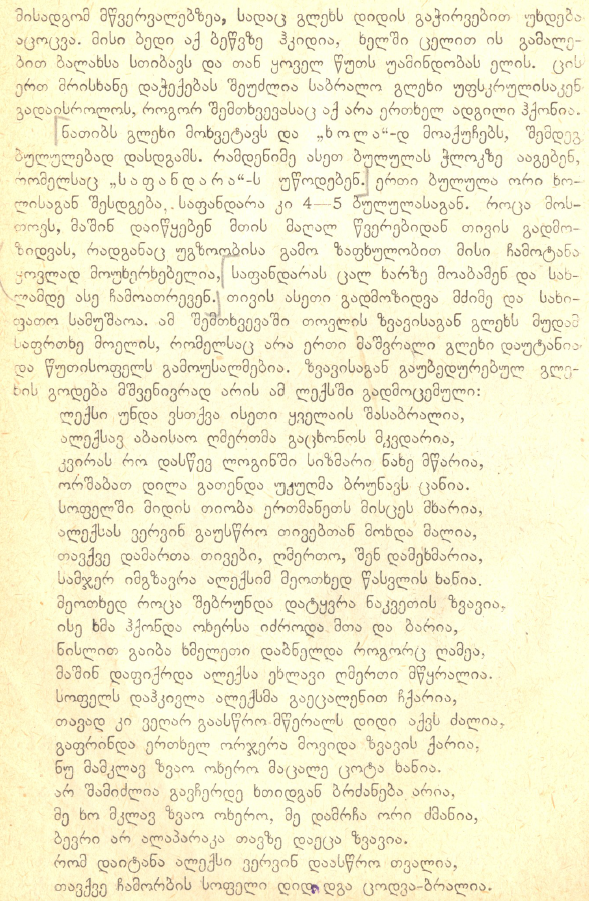 მისადგომ მწვერვალებზეა, სადაც გლეხს დიდის გაჭირვებით უხდება
აცოცვა. მისი ბედი აქ ბეწვზე ჰკიდია, ხელში ცელით ის გამალე-
ბით ბალახსა სთიბავს და თან ყოველ წუთს უამინდობას ელის. ცის
ერთ მრისხანე დაჭექებას შეუძლია საბრალო გლეხი უფსკრულისაკენ
გადაისროლოს, როგორ შემთხვევასაც აქ არა ერთხელ ადგილი ჰქონია.
ნათიბს გლეხი მოხვეტავს და „ხოლა“-დ მოაქუჩებს, შემდეგ
ბულულებად დასდგამს. რამდენიმე ასეთ ბულულას ჭლოკზე ააგებენ,
რომელსაც „საფანდარა“-ს უწოდებენ. ერთი ბულულა ორი ხო-
ლისაგან შესდგება, საფანდარა კი 4—5 ბულულასაგან. როცა მოს-
თოვს, მაშინ დაიწყებენ მთის მაღალ წვერებიდან თივის გადმო-
ზიდვას, რადგანაც უგზოობისა გამო ზაფხულობით მისი ჩამოტანა
ყოვლად მოუხერხებელია, საფანდარას ცალ ხარზე მოაბამენ და სახ-
ლამდე ასე ჩამოათრევენ. თივის ასეთი გადმოზიდვა მძიმე და სახი-
ფათო სამუშაოა. ამ შემთხვევაში თოვლის ზვავისაგან გლეხს მუდამ
საფრთხე მოელის, რომელსაც არა ერთი მაშვრალი გლეხი დაუტანია
და წუთისოფელს გამოუსალმებია. ზვავისაგან გაუბედურებულ გლე-
ხის გოდება მშვენივრად არის ამ ლექსში გადმოცემული:
ლექსი უნდა ვსთქვა ისეთი ყველაის შასაბრალია,
ალექსავ აბაისაო ღმერთმა გაცხონოს მკვდარია,
კვირას რო დასწევ ლოგინში სიზმარი ნახე მწარია,
ორშაბათ დილა გათენდა უკუღმა ბრუნავს ცანია.
სოფელში მიდის თიობა ერთმანეთს მისცეს მხარია,
ალექსას ვერვინ გაუსწრო თივებთან მოხდა მალია,
თავქვე დამართა თივები, ღმერთო, შენ დამეხმარია,
სამჯერ იმგზავრა ალექსიმ მეოთხედ წასვლის ხანია.
მეოთხედ როცა შებრუნდა დატყვრა ნაკვეთის ზვავია,
ისე ხმა ჰქონდა ოხერსა იძროდა მთა და ბარია,
ნისლით გაიბა ხმელეთი დაბნელდა როგორც ღამეა,
მაშინ დაფიქრდა ალექსა ეხლავი ღმერთი მწყრალია.
სოფელს დაჰკივლა ალექსმა გაეცალენით ჩქარია,
თავად კი ვეღარ გაასწრო მწერალს დიდი აქვს ძალია,
გაფრინდა ერთხელ ორჯერა მოვიდა ზვავის ქარია,
ნუ მამკლავ ზვაო ოხერო მაცალე ცოტა ხანია.
არ შამიძლია გავჩერდე ხთიდგან ბრძანება არია,
მე ხო მკლავ ზვაო ოხერო, მე დამრჩა ორი ძმანია,
ბევრი არ ალაპარაკა თავზე დაეცა ზვავია.
რომ დაიტანა ალექსი ვერვინ დაასწრო თვალია,
თავქვე ჩამორბის სოფელი დიდ დგა ცოდვა-ბრალია.